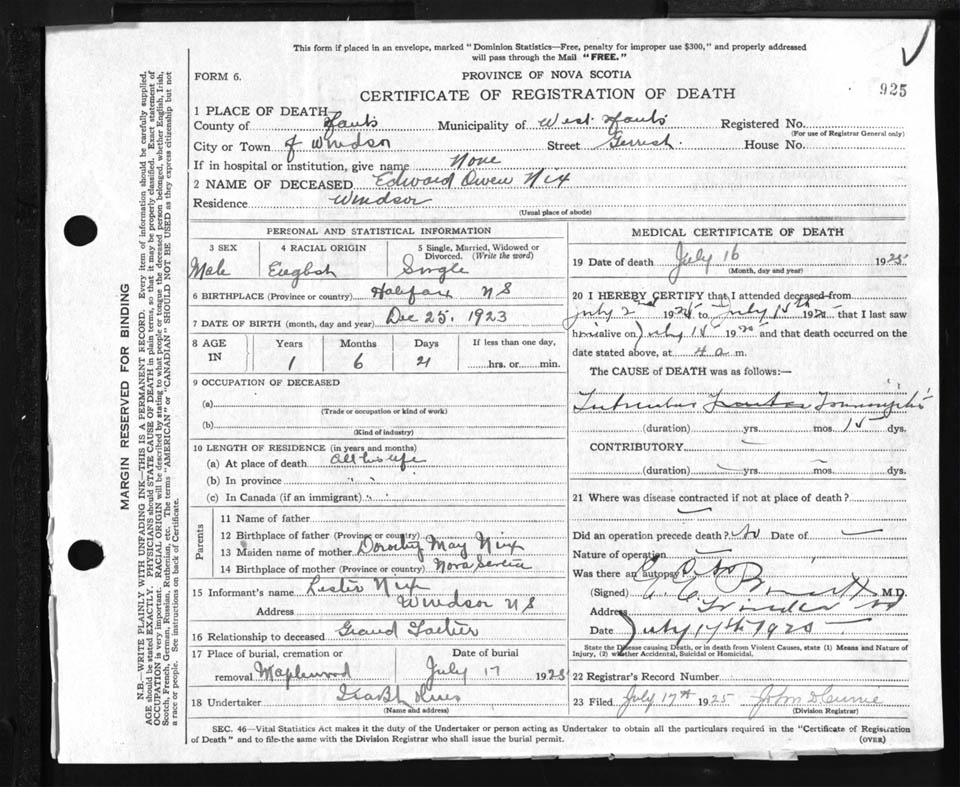 This form if placed in an envelope, marked "Dominion Statistics—Free, penalty for improper use $300," and properly addressed
will pass through the Mail "FREE."
FORM 6.
PROVINCE OF NOVA SCOTIA
925
CERTIFICATE OF REGISTRATION OF DEATH
1 PLACE OF DEATH
County of Hants Municipality of West Hants Registered No.
(For use of Registrar General only)
City or Town of Windsor Street Gerrish House No.
If in hospital or institution, give name None
2 NAME OF DECEASED Edward Owen Nix
Residence Windsor
(Usual place of abode)
PERSONAL AND STATISTICAL INFORMATION
3 SEX 4 RACIAL ORIGIN 5 Single, Married, Widowed or Divorced. (Write the word)
Male English Single
6 BIRTHPLACE (Province or country) Halifax NS
7 DATE OF BIRTH (month, day and year) Dec 25, 1923
8 AGE IN Years Months Days If less than one day,
1 6 21 hrs. or min.
9 OCCUPATION OF DECEASED
(a)
(Trade or occupation or kind of work)
(b)
(Kind of industry)
10 LENGTH OF RESIDENCE (in years and months)
(a) At place of death All his life
(b) In province " "
(c) In Canada (if an immigrant) " "
Parents
11 Name of father
12 Birthplace of father (Province or country)
13 Maiden name of mother Dorothy May Nix
14 Birthplace of mother (Province or country) Nova Scotia
15 Informant's name Lester Nix
Address Windsor NS
16 Relationship to deceased Grand Father
17 Place of burial, cremation or removal Maplewood
Date of burial July 17 1925
18 Undertaker
(Name and address)
MEDICAL CERTIFICATE OF DEATH
19 Date of death July 16 1925
(Month, day and year)
20 I HEREBY CERTIFY that I attended deceased from
July 2nd 1925 to July 15th 1925 that I last saw
him alive on July 15 1925 and that death occurred on the
date stated above, at 4 a m.
The CAUSE of DEATH was as follows:—
(duration) yrs. mos. 15 dys.
CONTRIBUTORY
(duration) yrs. mos. dys.
21 Where was disease contracted if not at place of death?
Did an operation precede death? No Date of
Nature of operation
Was there an autopsy?
(Signed) M.D.
Address Windsor NS
Date July 17th 1925
State the Disease causing Death, or in death from Violent Causes, state (1) Means and Nature of
Injury, (2) whether Accidental, Suicidal or Homicidal.
22 Registrar's Record Number
23 Filed July 17th 1925
(Division Registrar)
SEC. 46—Vital Statistics Act makes it the duty of the Undertaker or person acting as Undertaker to obtain all the particulars required in the "Certificate of Registration
of Death" and to file the same with the Division Registrar who shall issue the burial permit. (OVER)
MARGIN RESERVED FOR BINDING
N.B.—WRITE PLAINLY WITH UNFADING INK—THIS IS A PERMANENT RECORD. Every item of information should be carefully supplied.
AGE should be stated EXACTLY. PHYSICIANS should STATE CAUSE OF DEATH in plain terms, so that it may be properly classified. Exact statement of
OCCUPATION is very important. RACIAL ORIGIN will be described by stating to what people or tongue the deceased person belonged, whether English, Irish,
Scotch, French, German, Russian, Ruthenian, etc. The terms "AMERICAN" or "CANADIAN" SHOULD NOT BE USED as they express citizenship but not
a race or people. See instructions on back of Certificate.